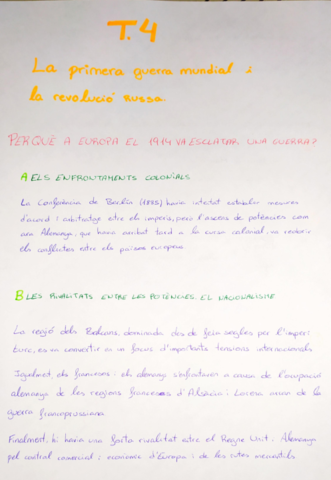 T.4
La primera guerra mundial i
la revolució russa.
PERQUÈ A EUROPA EL 1914 VA ESCLATAR UNA GUERRA?
A ELS ENFRONTAMENTS COLONIALS
La Conferència de Berlín (1885) havia intentat establir mesures
d'acord i arbitratge entre els imperis, però l'ascens de potències com
ara Alemanya, que havia arribat tard a la cursa colonial, va reobrir
els conflictes entre els països europeus.
B LES RIVALITATS ENTRE LES POTÈNCIES. EL NACIONALISME
La regió dels Balcans, dominada des de feia segles per l'imperi
turc, es va convertir en un focus d'importants tensions internacionals
Igualment, els francesos i els alemanys s'enfrontaven a causa de l'ocupació
alemanya de les regions franceses d'Alsàcia i Lorena arran de la
guerra francoprussiana.
Finalment, hi havia una forta rivalitat entre el Regne Unit i Alemanya
pel control comercial i econòmic d'Europa i de les rutes mercantils